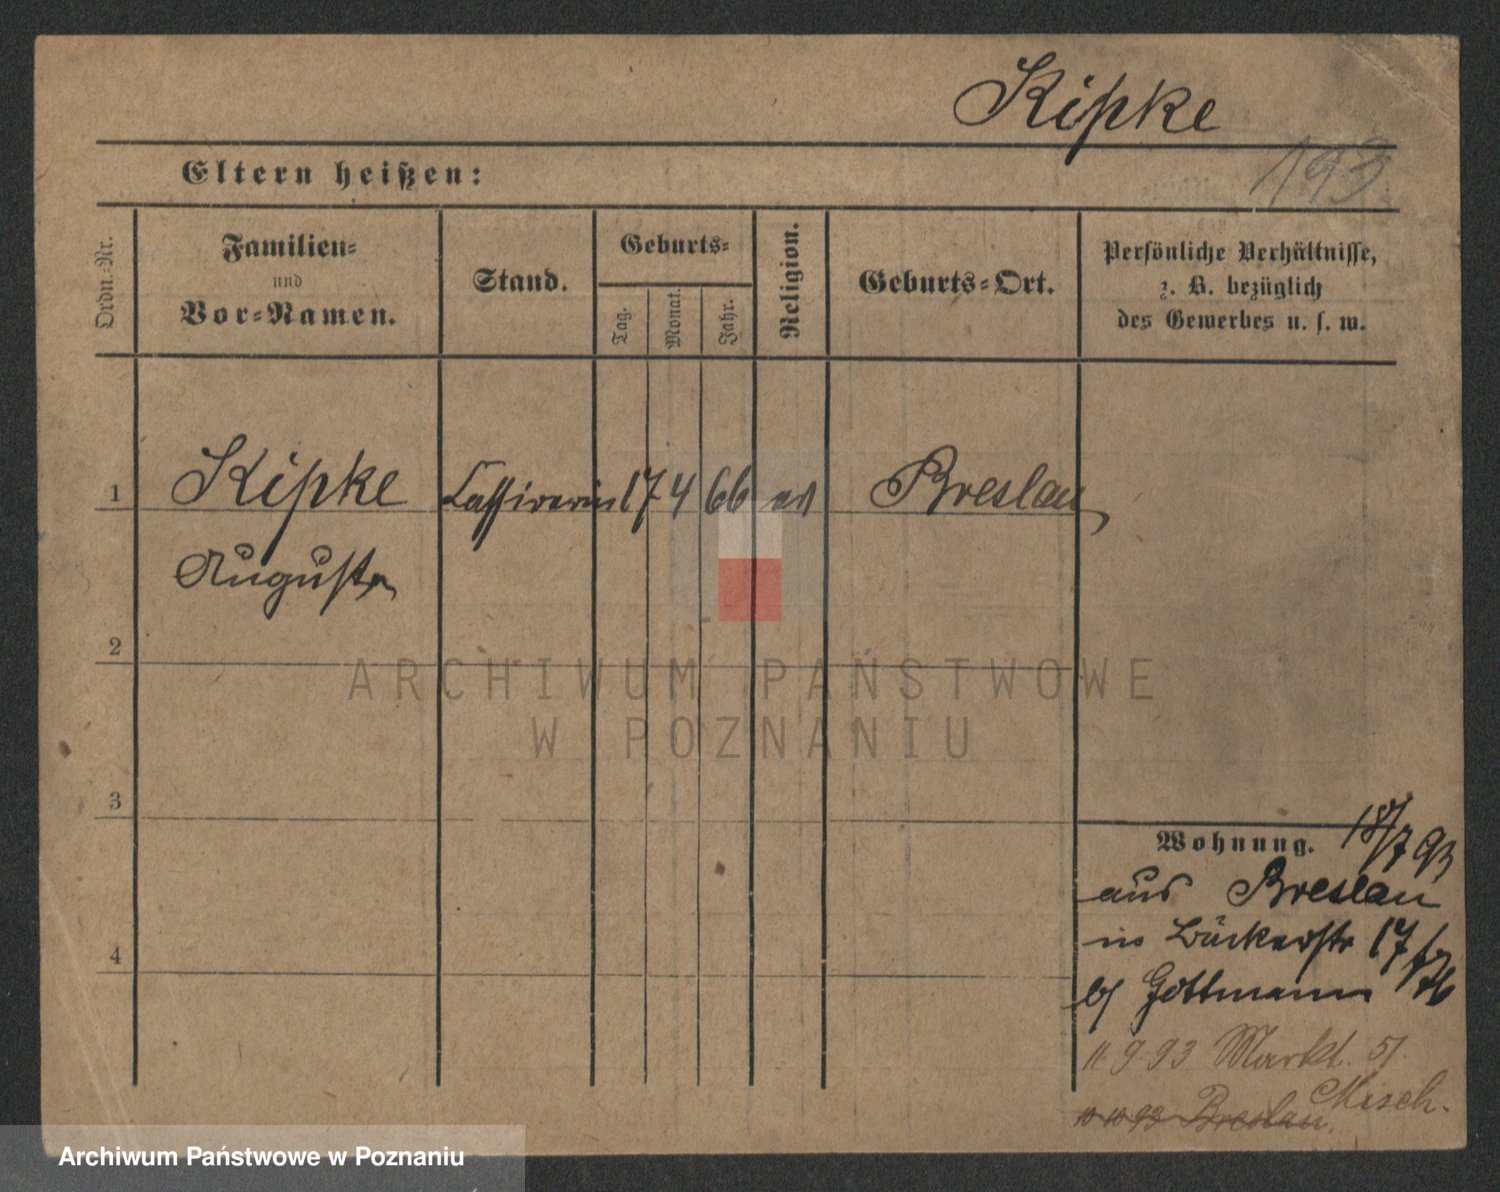 Kipke
193
Eltern heißen:
Ordn.-Nr.
Familien-
und
Vor-Namen.
Stand.
Geburts-
Tag.
Monat.
Jahr.
Religion.
Geburts-Ort.
Persönliche Verhältnisse,
z. B. bezüglich
des Gewerbes u. s. w.
1 Kipke Cassirerin 17 4 66 ev Breslau
Auguste
2
ARCHIWUM PAŃSTWOWE
W POZNANIU
3
Wohnung. 18/7 93
aus Breslau
in Bäckerstr 17
b/ Gottmann
11 9 93 Markt. 51.
Misch.
10 10 93 Breslau.
4
Archiwum Państwowe w Poznaniu